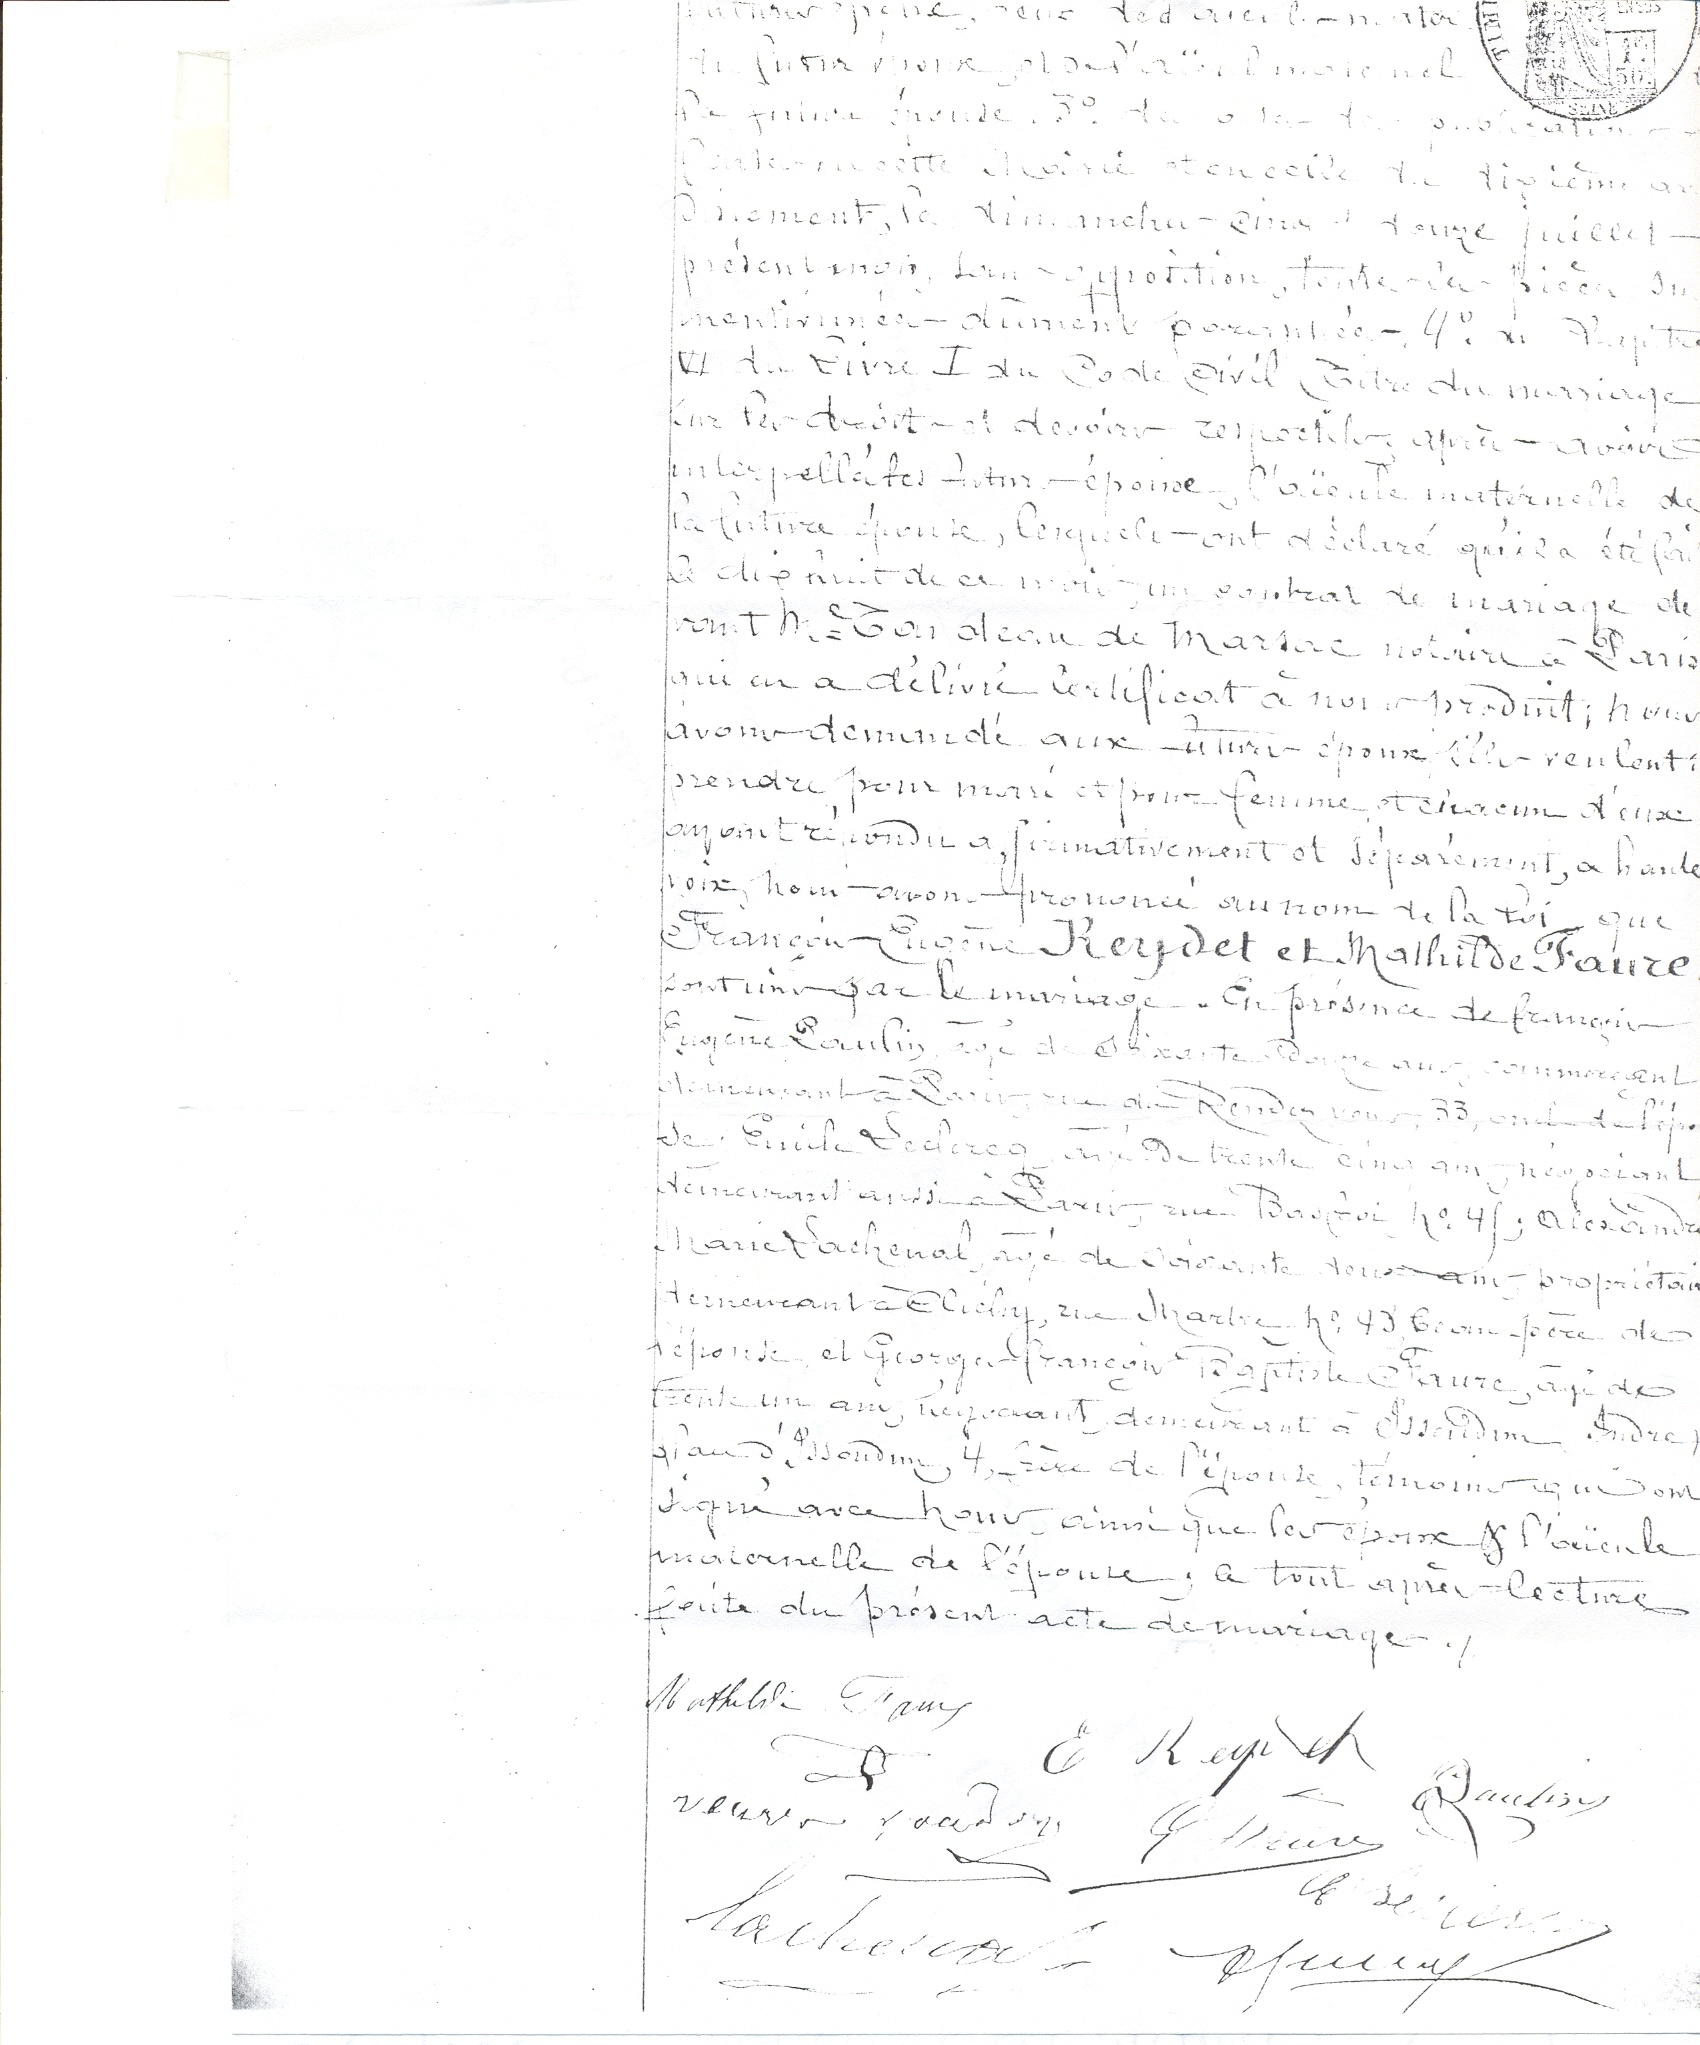 du futur époux, et de l'aïeul maternel
la future épouse. 3° des publications
faites en cette Mairie et en celle du dixième ar
dissement, les dimanches cinq et douze juillet
présent mois, sans opposition, toutes les pièces sus
mentionnées dûment paraphées, 4° du Chapitre
VI du Livre I du Code Civil Titre du mariage
sur les droits et devoirs respectifs, après avoir
interpellé les futurs époux, l'aïeule maternelle de
la future épouse, lesquels ont déclaré qu'il a été fai
le dix huit de ce mois, un contrat de mariage de
vant Me Tandeau de Marsac notaire à Paris
qui en a délivré certificat à nous produit; nous
avons demandé aux futurs époux s'ils veulent
prendre pour mari et pour femme, et chacun d'eux
ayant répondu affirmativement et séparément, a haute
voix, nous avons prononcé au nom de la loi que
François Eugène Reydet et Mathilde Faure
sont unis par le mariage. En présence de françois
Eugène Paulin, âgé de soixante douze ans, commerçant
demeurant à Paris, rue du Rendez vous, 33, oncle de l'épo
de Emile Leclercq, âgé de trente cinq ans, négociant
demeurant aussi à Paris, rue Basfroi no. 45; Alexandre
Marie Lachenal, âgé de soixante deux ans, propriétair
demeurant à Clichy, rue Martre, no. 43, beau père de
l'épouse, et Georges françois Baptiste Faure, âgé de
trente un ans, négociant, demeurant à Issoudun Indre)
d'Issoudun, 4, frère de l'épouse, témoins qui ont
signé avec nous, ainsi que les époux & l'aïeule
maternelle de l'épouse, le tout après lecture
faite du présent acte de mariage ./
Mathilde Faure
E Reydet
Paulin
veuve
G Faure
E Leclercq
Lachenal